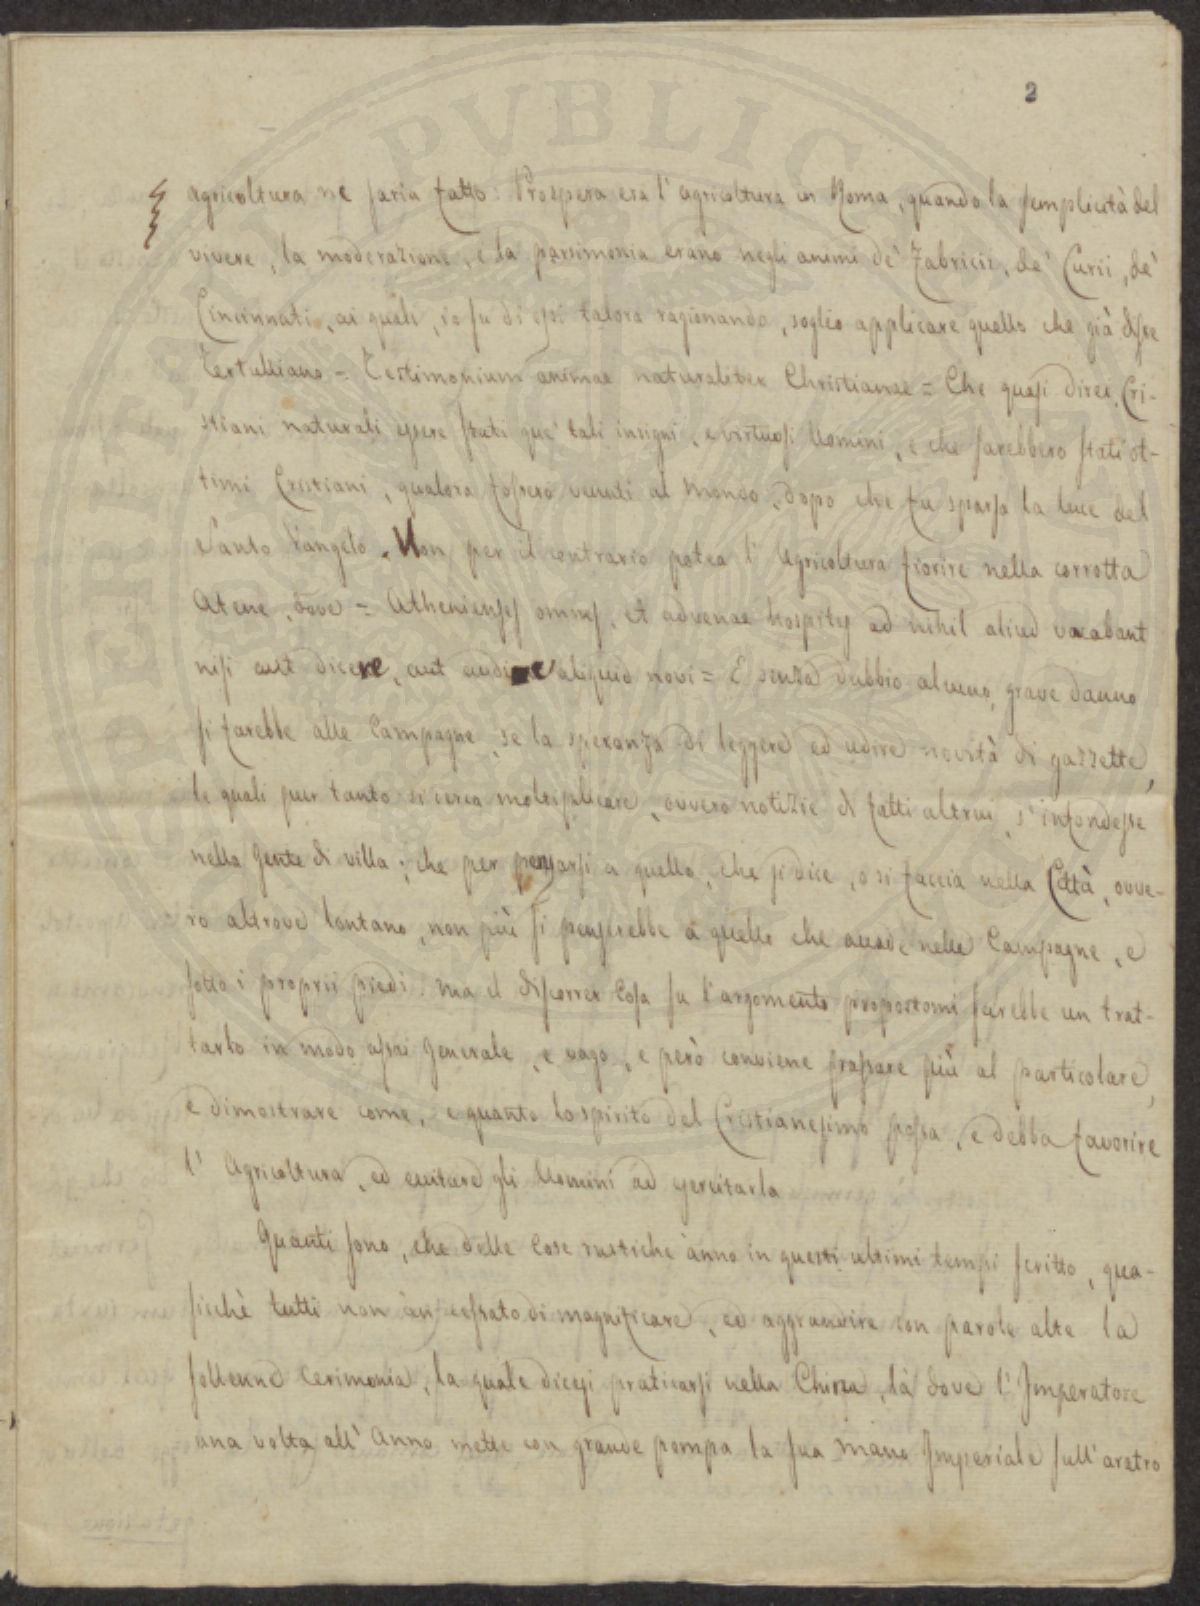 2
agricoltura ne saria fatto. Prospera era l'agricoltura in Roma, quando la semplicità del
vivere, la moderazione, e la parsimonia erano negli animi de' Fabricii, de' Curii, de'
Cincinnati, ai quali, io su di essi talora ragionando, soglio applicare quello che già disse
Tertulliano = Testimonium animae naturaliter Christianae = Che quasi direi Cri-
stiani naturali essere stati que' tali insigni, e virtuosi Uomini, e che sarebbero stati ot-
timi Cristiani, qualora fossero venuti al Mondo, dopo che fu sparsa la luce del
Santo Vangelo. Non per il contrario potea l'Agricoltura fiorire nella corrotta
Atene, dove = Athenienses omnes, et advenae hospites ad nihil aliud vacabant
nisi aut dicere, aut audire aliquid novi = E senza dubbio alcuno, grave danno
si farebbe alle Campagne, se la speranza di leggere ed udire novità di gazzette,
le quali pur tanto si cerca moltiplicare, ovvero notizie di fatti altrui, s'infondesse
nella Gente di villa; che per pensarsi a quello, che si dice, o si faccia nella Città, ovve-
ro altrove lontano, non più si penserebbe a quello che accade nelle Campagne, e
sotto i proprii piedi: ma il discorrer Cosa su l'argomento propostomi sarebbe un trat-
tarlo in modo assai Generale, e vago, e però conviene passare più al particolare,
e dimostrare come, e quanto lo spirito del Cristianesimo possa, e debba favorire
l'Agricoltura, ed eccitare gli Uomini ad esercitarla
Quanti sono, che delle Cose rustiche anno in questi ultimi tempi scritto, qua-
sicchè tutti non àn cessato di magnificare, ed aggrandire con parole alte la
sollenne Cerimonia, la quale dicesi praticarsi nella China, là dove l'Imperatore
una volta all'Anno mette con grande pompa la sua mano Imperiale sull'aratro